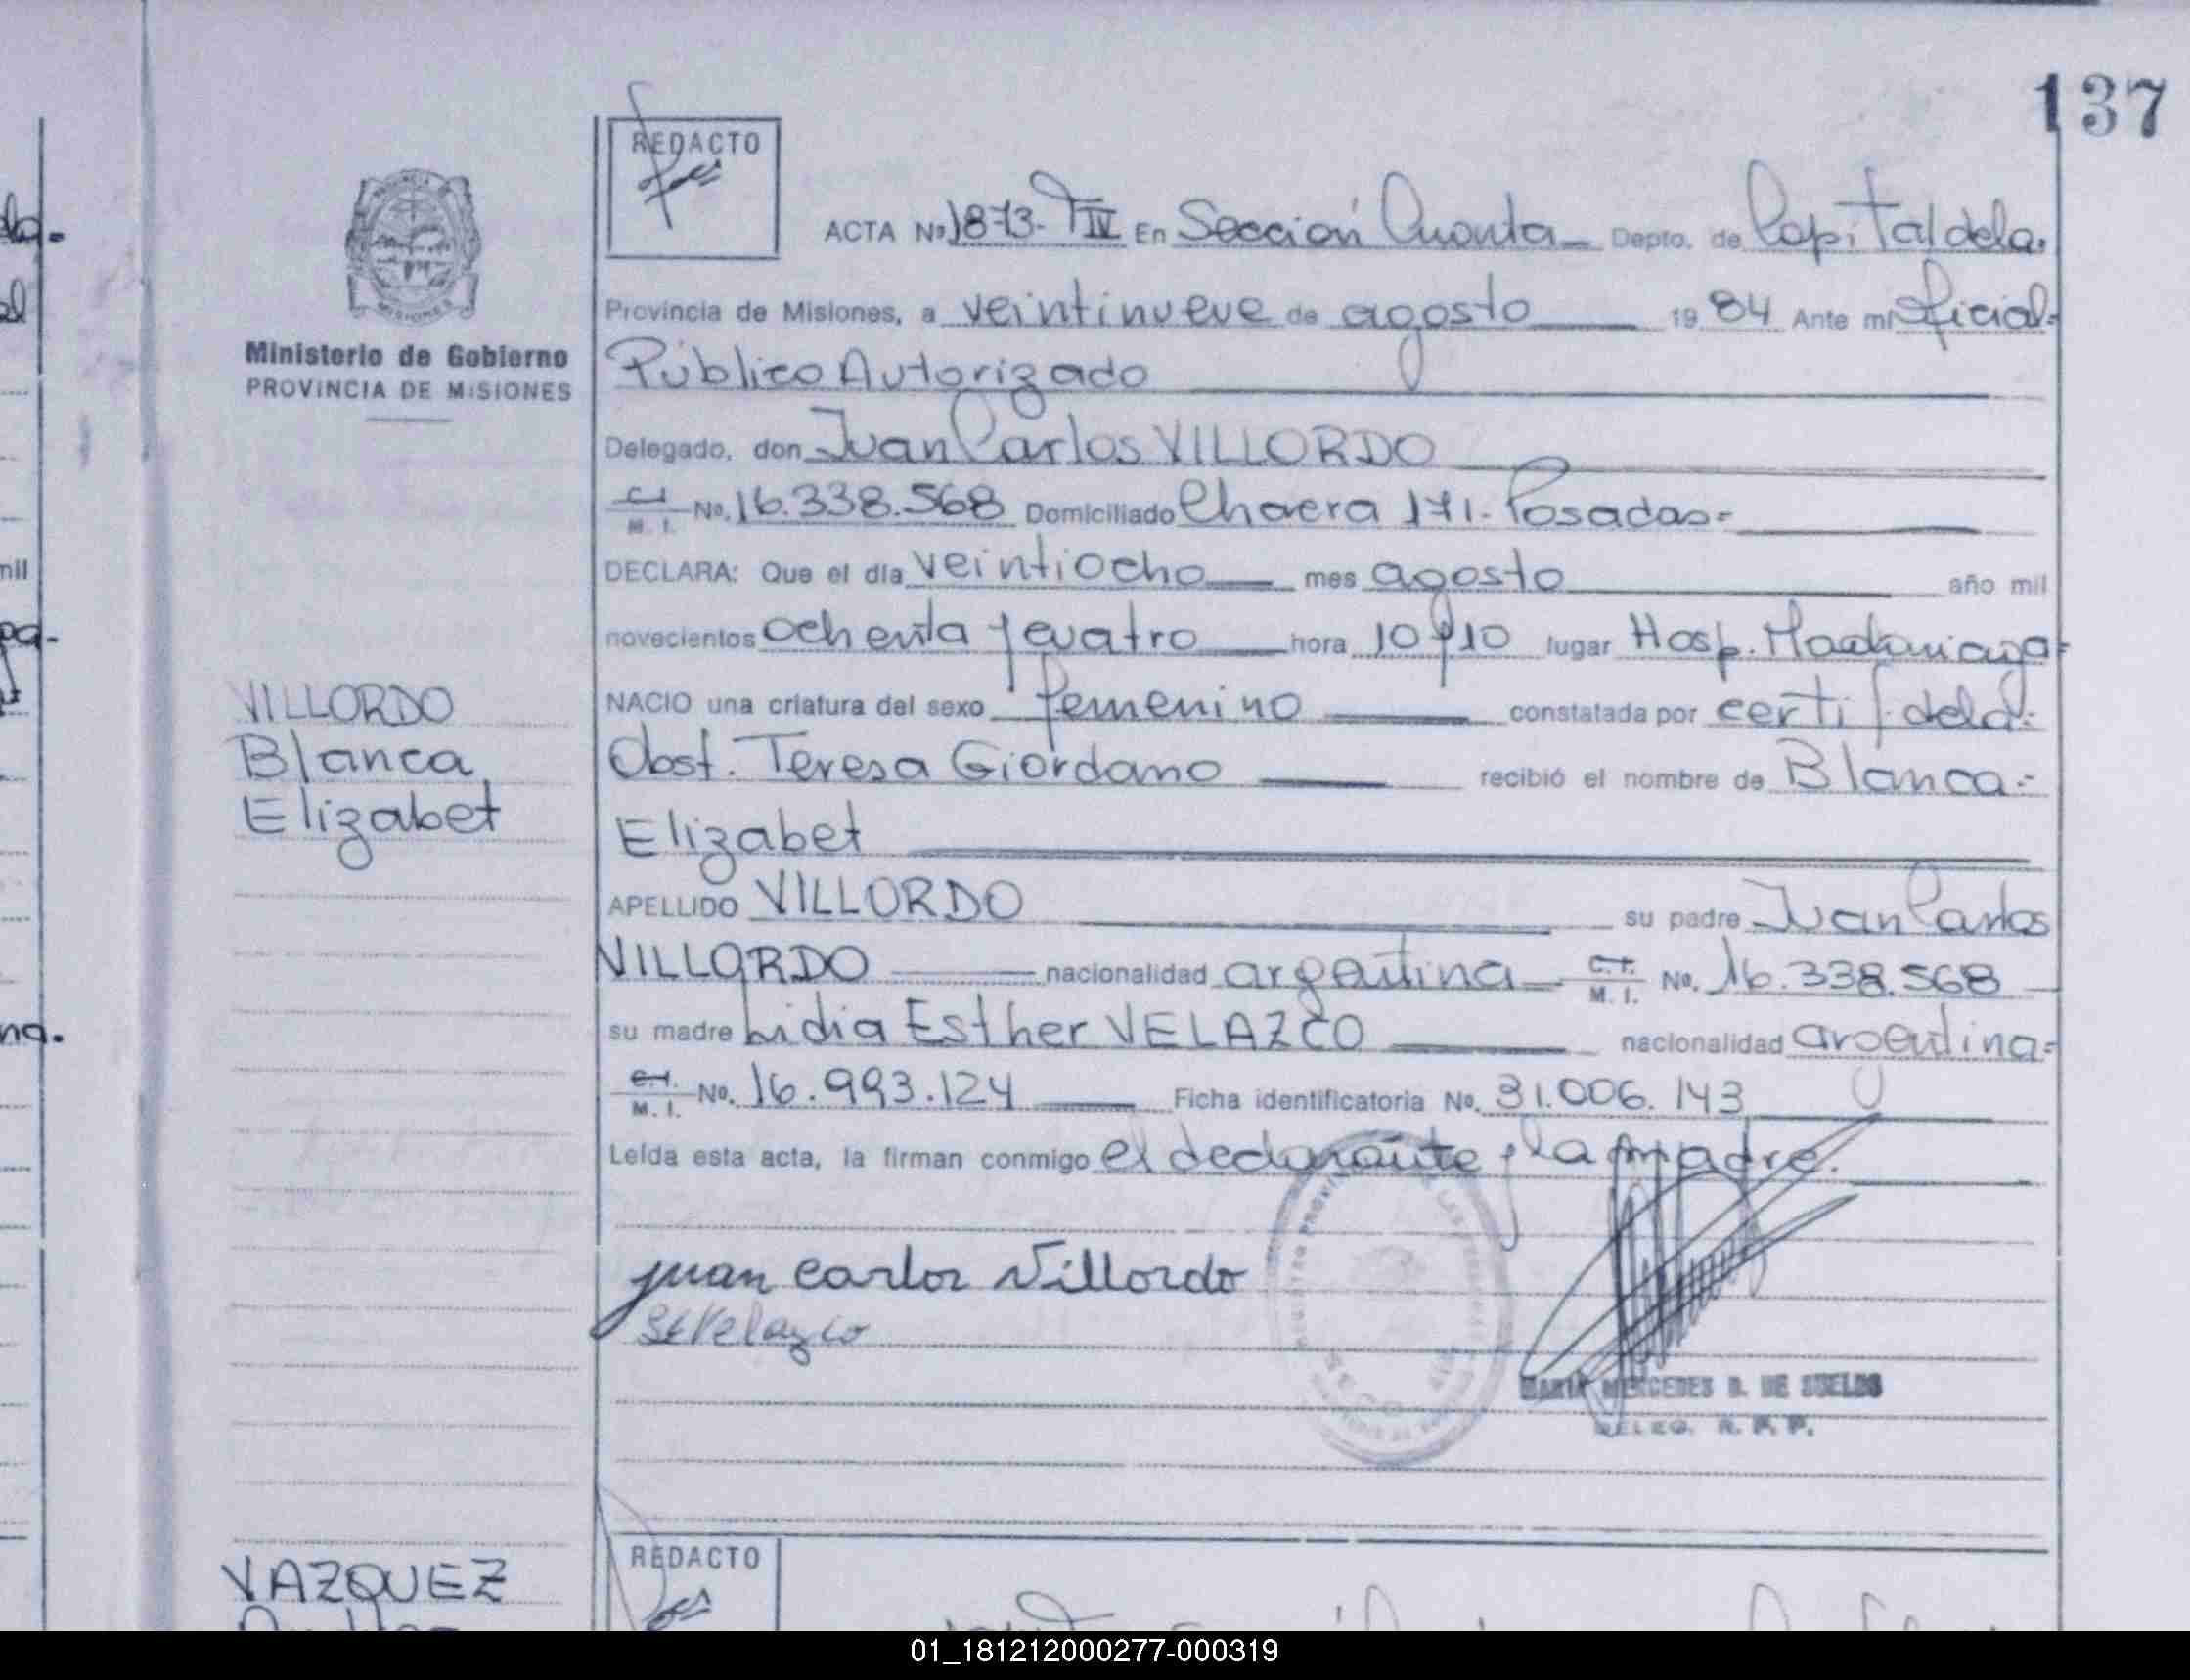 137
REDACTO
ACTA Nº 1873- T IV En Sección Cuarta Depto. de Capital de la.
Provincia de Misiones, a veintinueve de agosto 1984 Ante mí Oficial-
Público Autorizado
Delegado, don Juan Carlos VILLORDO
C.I. M. I. No. 16.338.568 Domiciliado Chacra 171.- Posadas-
DECLARA: Que el día veintiocho mes agosto año mil
novecientos ochenta y cuatro hora 10 y 10 lugar Hosp. Madariaga-
NACIO una criatura del sexo femenino constatada por certif. de la-
Obst. Teresa Giordano recibió el nombre de Blanca-
Elizabet
APELLIDO VILLORDO su padre Juan Carlos
VILLORDO nacionalidad argentina C.I. M. I. No. 16.338.568
su madre Lidia Esther VELAZCO nacionalidad argentina-
C.I. M. I. No. 16.993.124 Ficha identificatoria No. 31.006.143
Leída esta acta, la firman conmigo el declarante y la madre.
juan carlos Villordo
Velazco
MARIA MERCEDES B. DE SUELDO
DELEG. R. P. P.
Ministerio de Gobierno
PROVINCIA DE MISIONES
VILLORDO
Blanca
Elizabet
REDACTO
VAZQUEZ
01_181212000277-000319